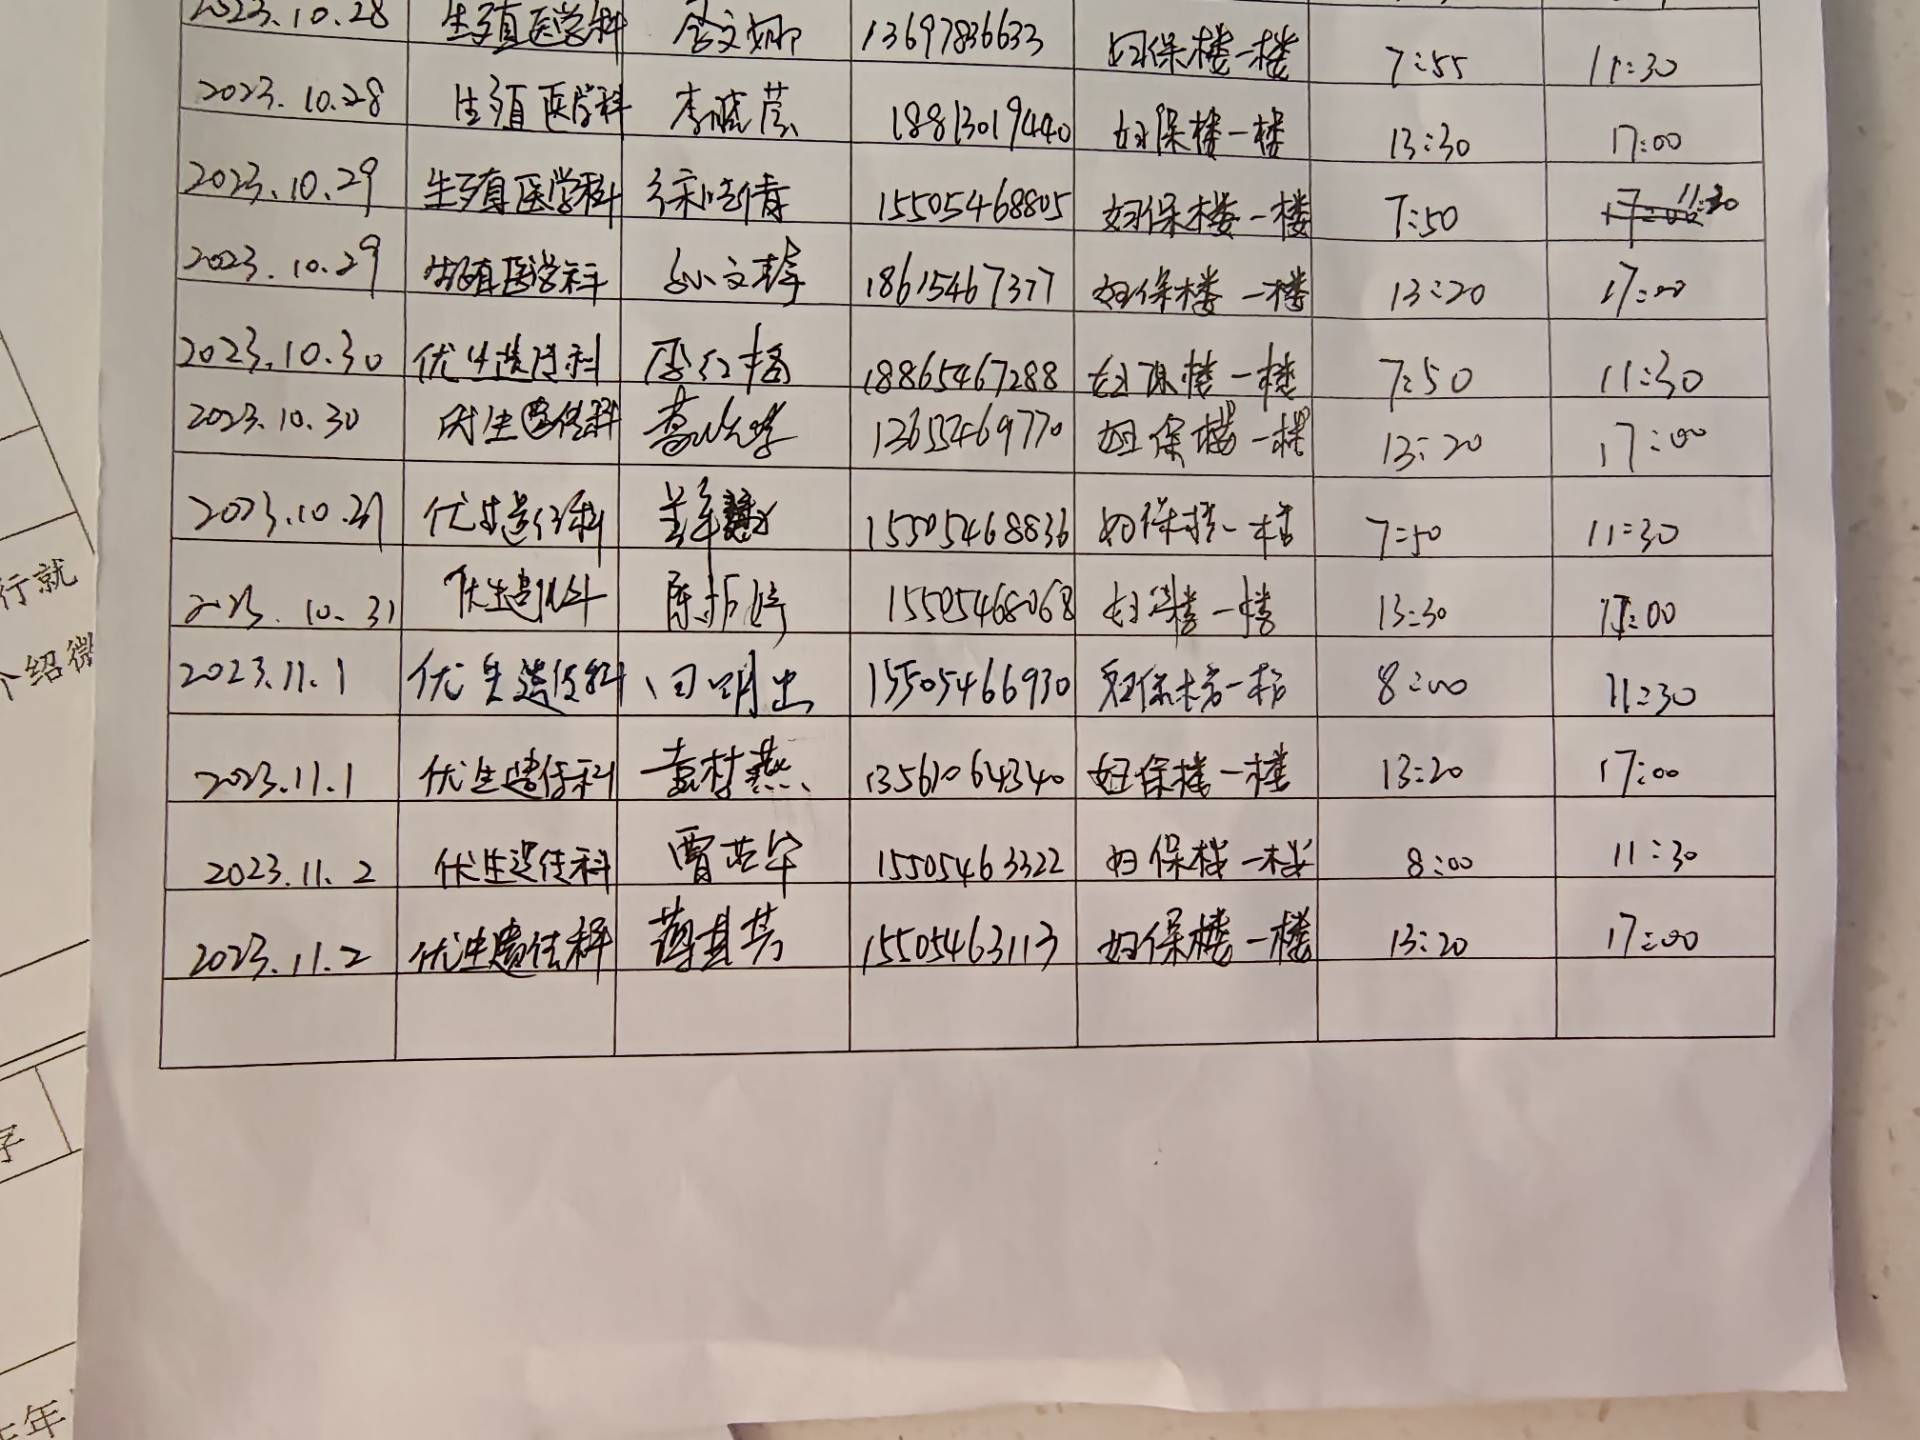 2023.10.28 生殖医学科 13697836633 妇保楼一楼 7:55 11:30
2023.10.28 生殖医学科 李晓莹 18813019440 妇保楼一楼 13:30 17:00
2023.10.29 生殖医学科 徐晓倩 15505468805 妇保楼一楼 7:50 11:30
2023.10.29 生殖医学科 孙文 18615467377 妇保楼一楼 13:20 17:00
2023.10.30 优生遗传科 18865467288 妇保楼一楼 7:50 11:30
2023.10.30 优生遗传科 13655469770 妇保楼一楼 13:20 17:00
2023.10.31 优生遗传科 15505468836 妇保楼一楼 7:50 11:30
2023.10.31 优生遗传科 陈 婷 15505468068 妇保楼一楼 13:30 17:00
2023.11.1 优生遗传科 15505466930 妇保楼一楼 8:00 11:30
2023.11.1 优生遗传科 袁村燕 13561064340 妇保楼一楼 13:20 17:00
2023.11.2 优生遗传科 贾 15505463322 妇保楼一楼 8:00 11:30
2023.11.2 优生遗传科 15505463113 妇保楼一楼 13:20 17:00
行就
介绍微
年